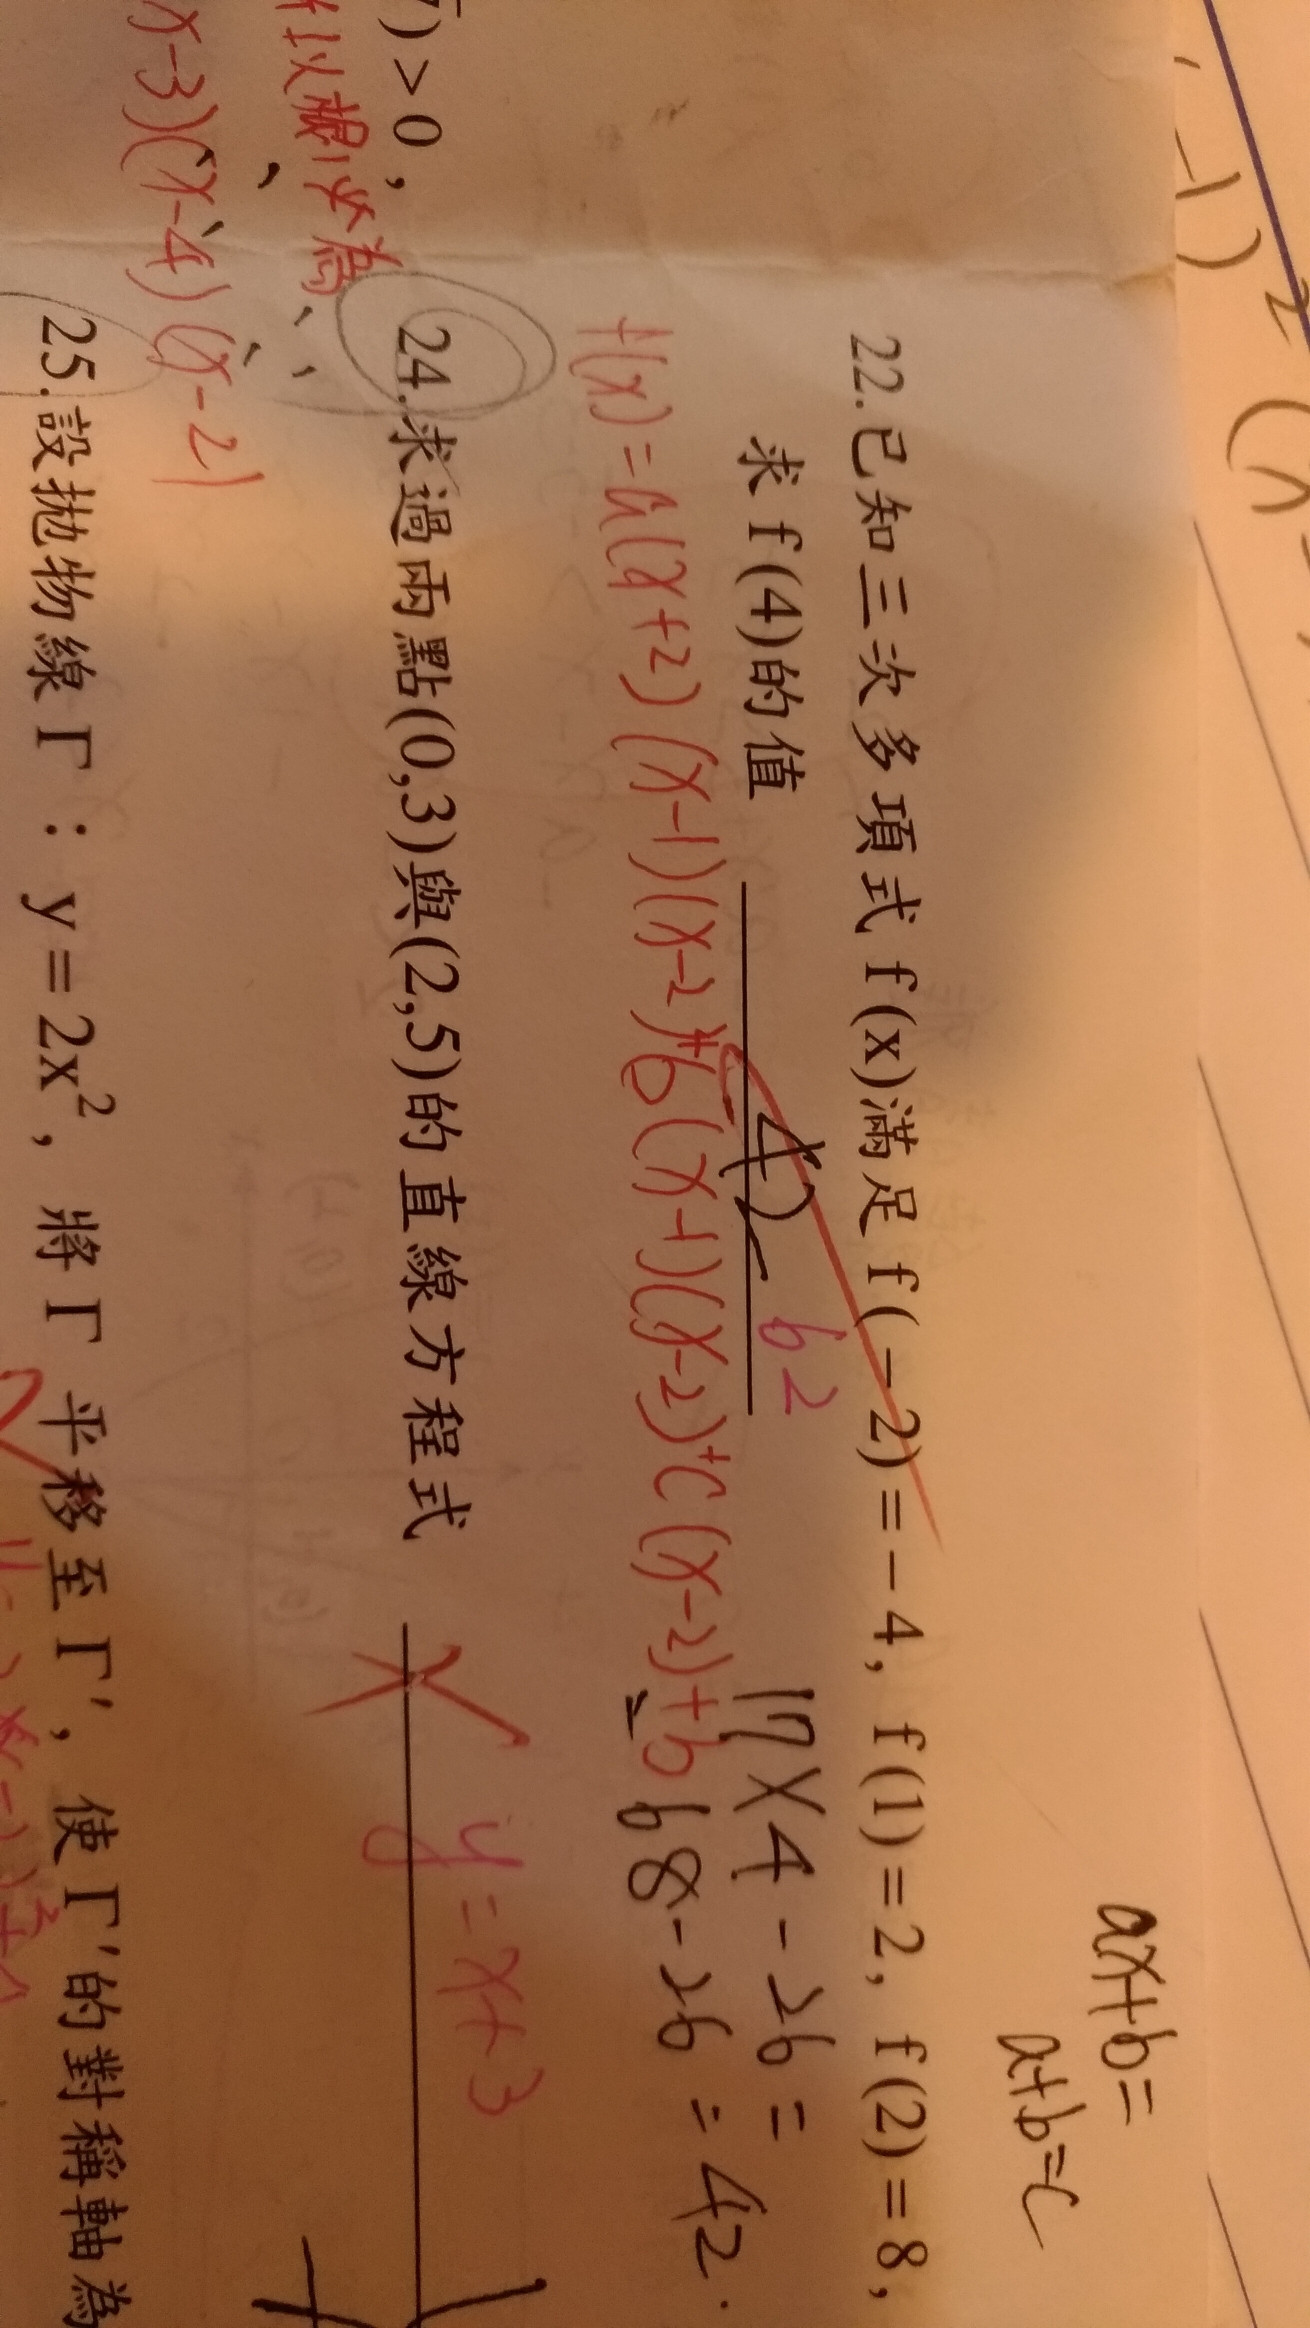 ax+b=
a+b=c
22.已知三次多項式 f(x)滿足 f(-2)=-4, f(1)=2, f(2)=8,
求 f(4)的值 42 62
17×4-26=
68-26=42.
f(x)=a(x+2)(x-1)(x-2)+b(x-1)(x-2)+c(x-2)+b
24.求過兩點(0,3)與(2,5)的直線方程式
y=x+3
)>0,
根必為
x-3)(x-4)(x-2)
25.設拋物線 Γ：y=2x², 將 Γ 平移至 Γ′, 使 Γ′的對稱軸為